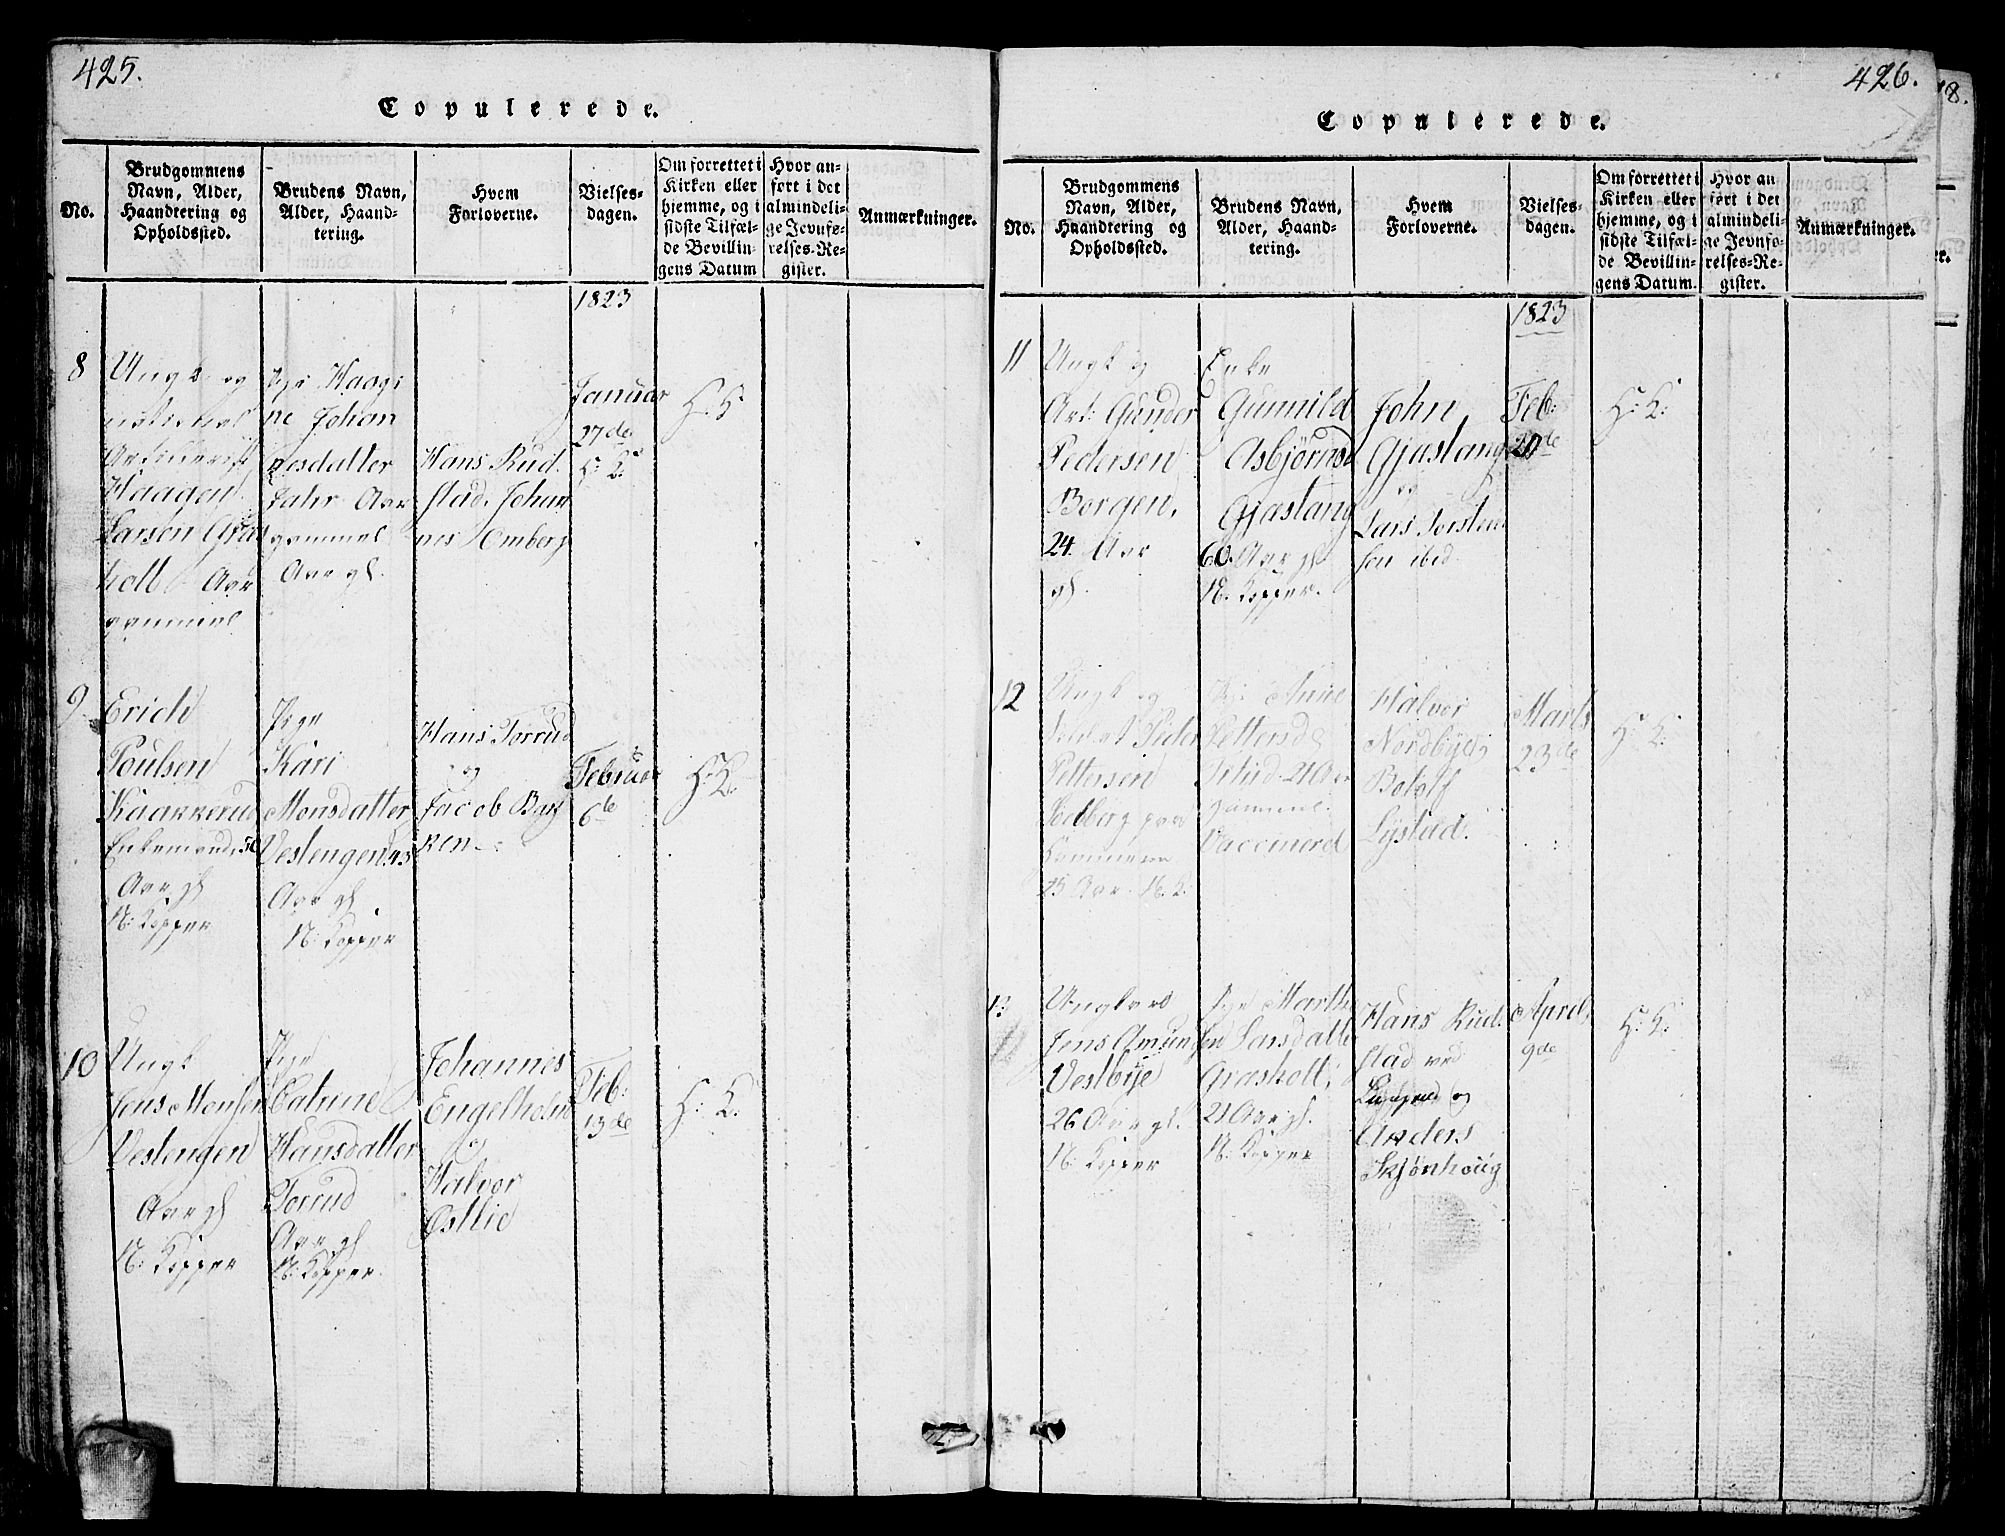 425.
Copulerede.
No.
Brudgommens
Navn, Alder,
Haandtering og
Opholdssted.
Brudens Navn,
Alder, Haand-
tering.
Hvem
Forloverne.
Vielses-
dagen.
Om forrettet i
Kirken eller
hjemme, og i
sidste Tilfæl-
de Bevillin-
gens Datum
Hvor an-
ført i det
almindeli-
ge Jevnfø-
relses-Re-
gister.
Anmærkninger.
1823
8
Ungk og
Haagen
Larsen Gras
holt Aar
gammel
Pige Haagi
ne Johan
nesdatter
Jahr Aar
gammel
Aar gl.
Hans Rud
stad, Johan
nes Omberg
Januar
27de
H: K:
H. K
9
Erich
Poulsen
Kaakkerud
Enkemand, 50
Aar gl
N: Kopper
Pige
Kari
Monsdatter
Vestengen 45
Aar gl
N: Kopper
Hans Torrud
og
Jacob Bak
ken
Februar
6te
H: K:
10
Ungk
Jens Monsen
Vestengen
Aar gl
N: Kopper
Pige
Catrine
Hansdatter
Torrud
Aar gl
N: Kopper
Johannes
Engelholm
og
Halvor
Østlie
Feb:
13de
H: K:
426.
Copulerede.
No.
Brudgommens
Navn, Alder,
Haandtering og
Opholdssted.
Brudens Navn,
Alder, Haand-
tering.
Hvem
Forloverne.
Vielses-
dagen.
Om forrettet i
Kirken eller
hjemme, og i
sidste Tilfæl-
de Bevillin-
gens Datum.
Hvor an
ført i det
almindeli-
ge Jevnfø-
relses-Re-
gister.
Anmærkninger.
1823
11
Ungk og
Art: Gunder
Pedersen
Borgen,
24 Aar
gl.
Enke
Gunnild
Asbjørnsd
Gjæstang
60 Aar gl
N. Kopper.
John
Gjæstang
og
Lars Torsten
sen ibid
Feb:
20de
H: K:
12
Ungk og
Soldat Peder
Pettersen
Sædberg paa
25 Aar N. K.
Pige Anne
Pettersd
21 Aar
gammel.
Vaccinered
Halvor
Nordbye,
Botolf
Lystad.
Marts
23de
H: K:
13
Ungkarl
Jens Amundsen
Vestbye
26 Aar gl.
N: Kopper
Pige Marthe
Larsdatter
Grasholt,
21 Aar gl.
N: Kopper
Hans Rud
stad ved
og
Anders
Skjønhoug
April
9de
H: K: